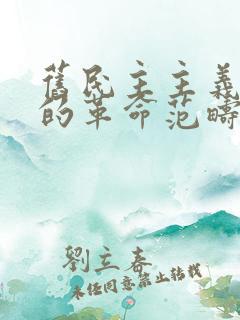 舊民主主義
的革命范疇
劉立春
未經同意禁止轉載